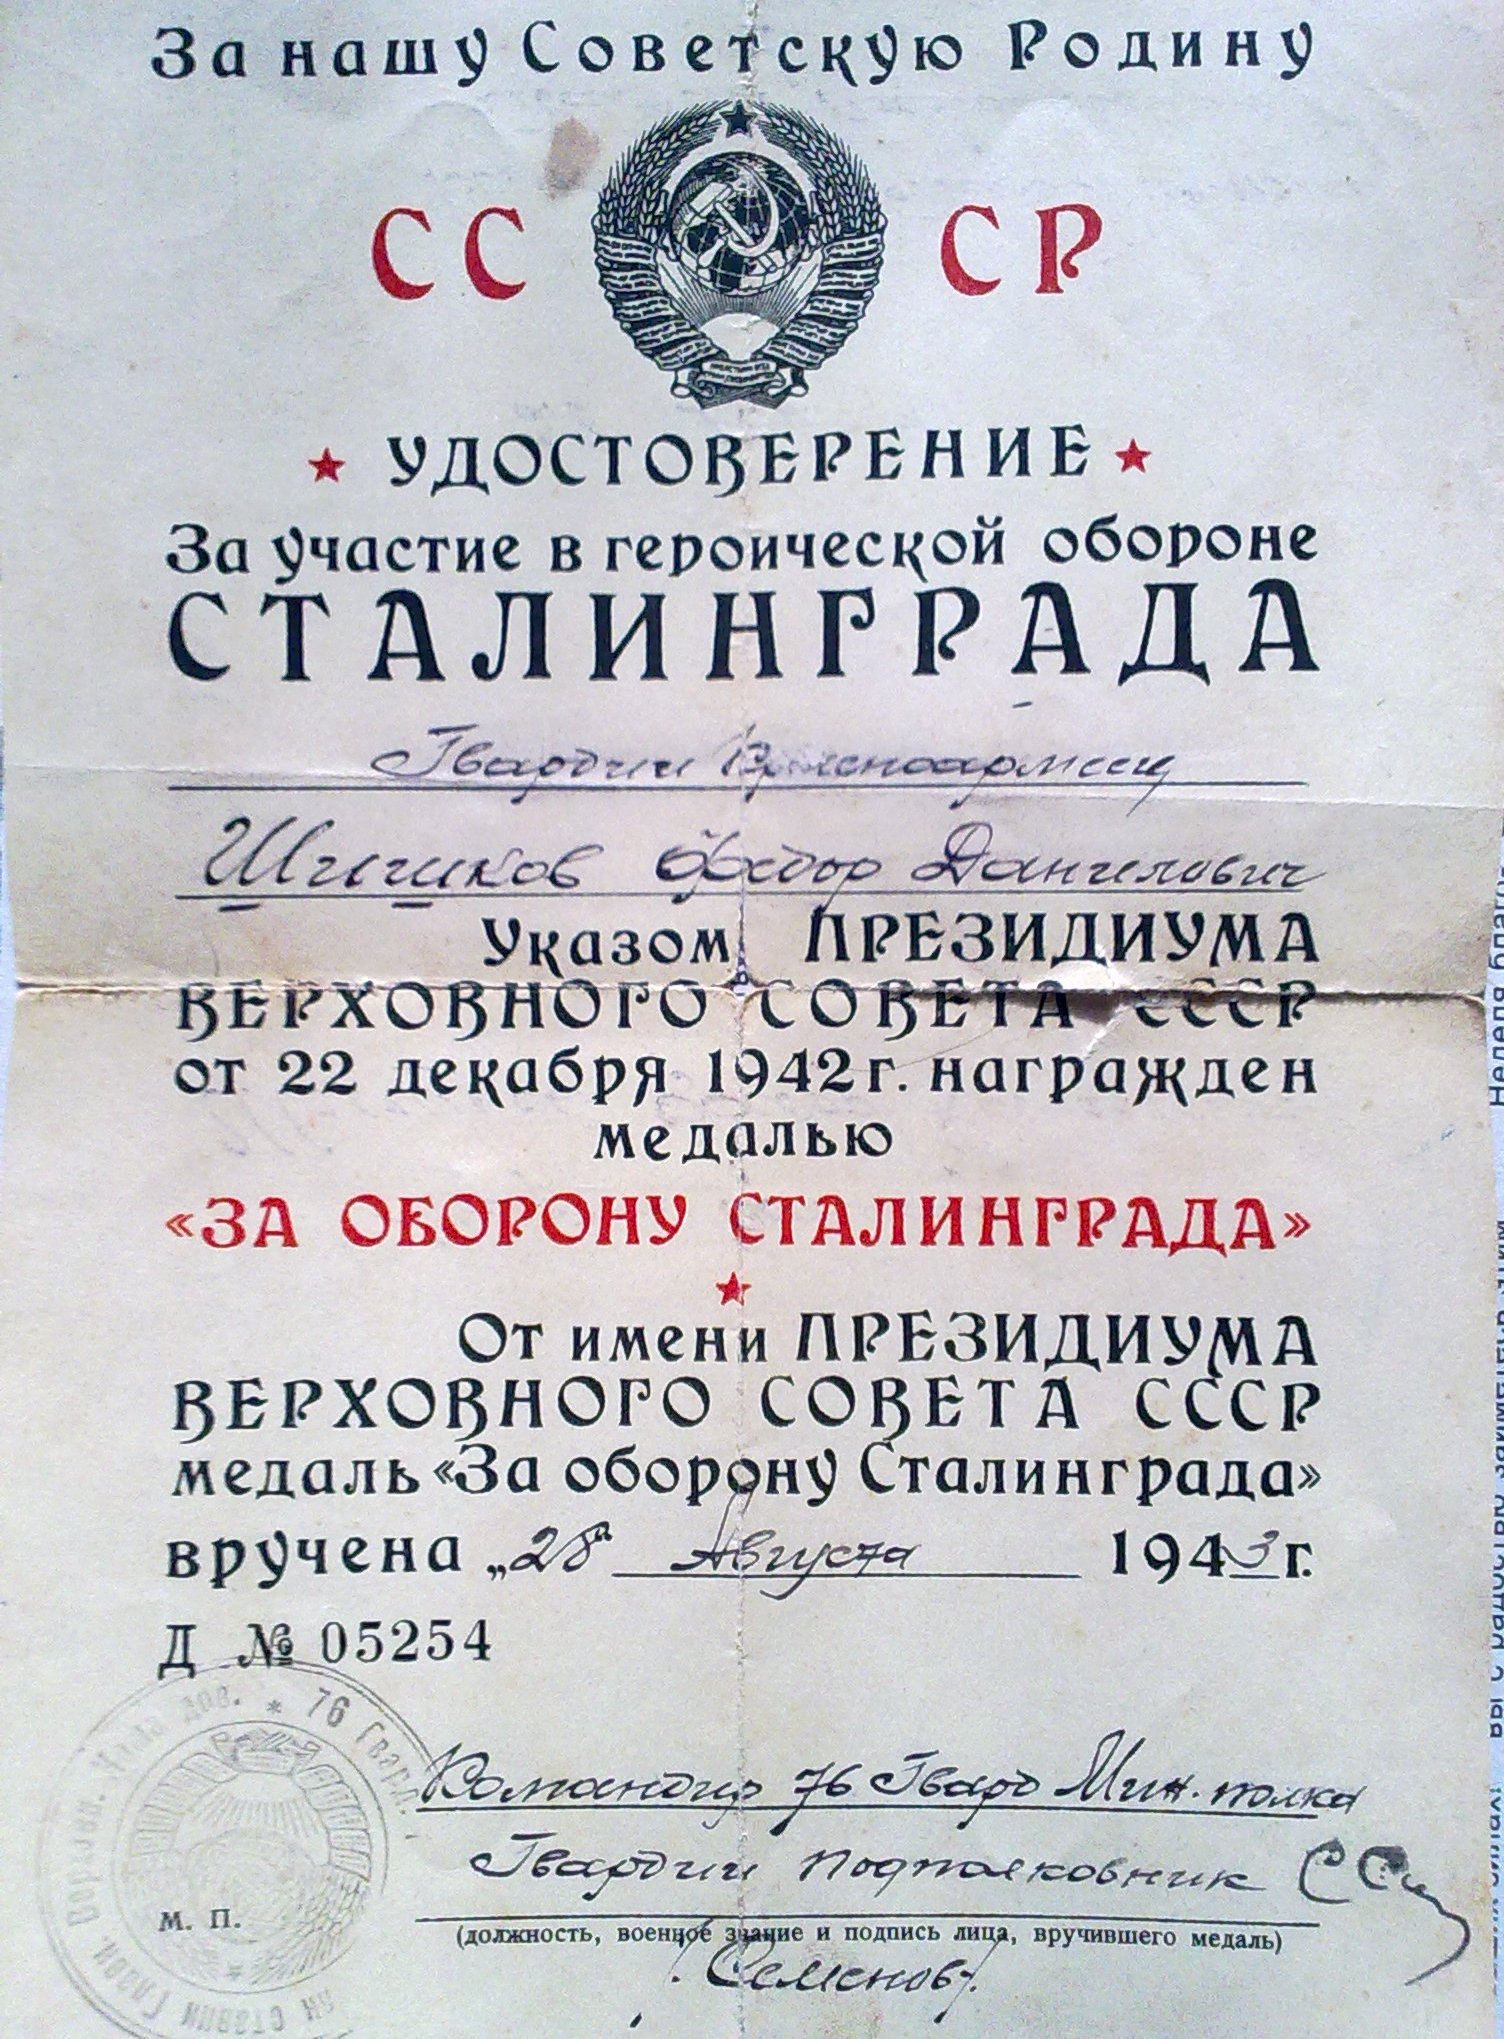 За нашу Советскую Родину
СССР
УДОСТОВЕРЕНИЕ
За участие в героической обороне
СТАЛИНГРАДА
Гвардии Красноармеец
Шишков Фёдор Данилович
Указом ПРЕЗИДИУМА
ВЕРХОВНОГО СОВЕТА СССР
от 22 декабря 1942 г. награжден
медалью
«ЗА ОБОРОНУ СТАЛИНГРАДА»
От имени ПРЕЗИДИУМА
ВЕРХОВНОГО СОВЕТА СССР
медаль «За оборону Сталинграда»
вручена „28“ Августа 1943 г.
Д № 05254
76 Гвард.
Командир 76 Гвард Мин. полка
Гвардии подполковник
м. п.
(должность, военное звание и подпись лица, вручившего медаль)
/Семенов/